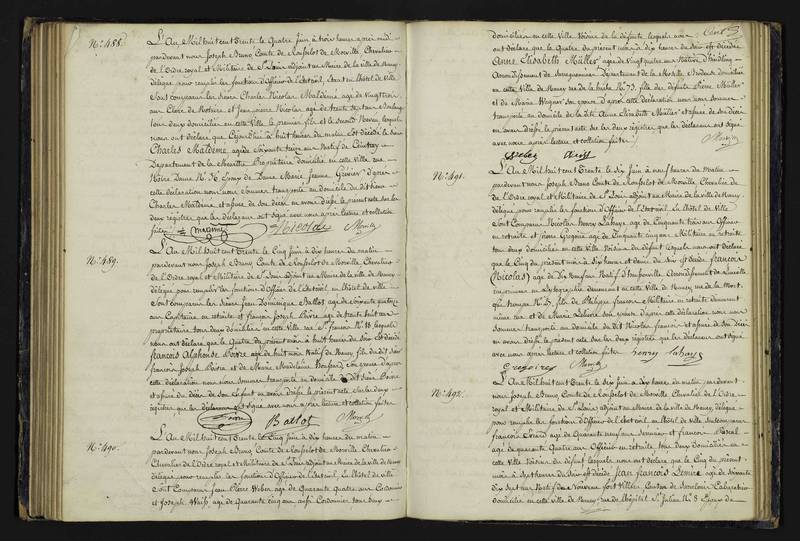 N.º 488.
L'An Mil huit cent Trente le Quatre Juin à trois heures après midi
pardevant nous Joseph Bruno Comte de Rosselot de Morville, Chevalier
de l'Ordre royal et Militaire de S.t Louis adjoint au Maire de la ville de Nancy
délégué pour remplir les fonctions d'Officier de l'état civil, étant en l'hôtel de Ville
Sont comparus les sieurs Charles Nicolas Maldémé agé de vingt trois
ans Clerc de Notaire et Jean pierre Nicolas agé de trente sept ans
tous deux domiciliés en cette Ville, le premier fils et le second Neveu, lesquels
nous ont déclaré que Cejourd'hui à huit heures du matin est décédé le Sieur
Charles Maldémé agé de soixante treize ans Natif de
Département de la Meurthe Propriétaire domicilié en cette Ville rue
Notre Dame N.º 36 Epoux de Dame Marie Jeanne Grévier d'après
cette déclaration nous nous sommes transporté au domicile du dit sieur
Charles Maldémé et assuré de son décès en avons dressé le présent acte sur les
deux registres que les déclarans ont signé avec nous après lecture et collation
faites
Nicolas Morville
N.º 489.
L'An Mil huit cent Trente le Cinq Juin à dix heures du matin
pardevant nous Joseph Bruno Comte de Rosselot de Morville Chevalier
de l'Ordre royal et Militaire de S.t Louis adjoint au Maire de la ville de Nancy
délégué pour remplir les fonctions d'Officier de l'état civil, en l'hôtel de ville
Sont comparus les sieurs Jean Dominique Ballot agé de soixante quatorze
ans Capitaine en retraite et françois Joseph Poirre agé de trente huit ans
propriétaire tous deux domiciliés en cette Ville rue S.t françois N.º 18 lesquels
nous ont déclaré que le Quatre du présent mois à huit heures du soir est décédé
françois Alphonse Poirre agé de huit mois Natif de Nancy, fils du dit Sieur
françois Joseph Poirre et de Marie Madelaine son épouse d'après
cette déclaration nous nous sommes transporté au domicile du dit Sieur Poirre
et assuré du décès de son Enfant en avons dressé le présent acte sur les deux
registres que les déclarans ont signé avec nous après lecture et collation faites
Ballot Morville
N.º 490.
L'An Mil huit cent Trente le Cinq Juin à dix heures du matin
pardevant nous Joseph Bruno Comte de Rosselot de Morville Chevalier
Chevalier de l'Ordre royal et Militaire de S.t Louis adjoint au Maire de la ville de Nancy
délégué pour remplir les fonctions d'Officier de l'état civil, en l'hôtel de ville
Sont Comparus Jean Pierre Weber agé de Quarante Quatre ans Cordonnier
et Joseph Weiss agé de Quarante cinq ans aussi Cordonnier tous deux
domiciliés en cette Ville Voisins de la défunte, lesquels nous
ont déclaré que le Quatre du présent mois à dix heures du Soir est décédée
Anne Elisabeth Müller agée de vingt deux ans Native d'
Arrondissement de Sarreguemines département de la Moselle domiciliée
en cette Ville de Nancy rue de la hache N.º 73, fille des défunts Pierre Müller
et de Marie Wagner son épouse d'après cette déclaration nous nous sommes
transporté au domicile de la dite Anne Elisabeth Müller et assuré de son décès
en avons dressé le présent acte sur les deux registres que les déclarans ont signé
avec nous après lecture et collation faites
Weber Weiss Morville
N.º 491.
L'An Mil huit cent Trente le Six Juin à neuf heures du matin
pardevant nous Joseph Bruno Comte de Rosselot de Morville, Chevalier de
de l'Ordre royal et Militaire de S.t Louis adjoint au Maire de la ville de Nancy
délégué pour remplir les fonctions d'Officier de l'état civil, en l'hôtel de Ville
Sont Comparus Nicolas Henry Lahaye agé de Cinquante trois ans Officier
en retraite et pierre Grégoire agé de Cinquante Cinq ans Militaire en retraite
tous deux domiciliés en cette Ville Voisins du défunt lesquels nous ont déclaré
que le Cinq du présent mois à six heures et demie du soir est décédé françois
(Nicolas) agé de Dix Neuf ans Natif d'haussonville Arrondissement de Lunéville
Imprimeur en Lithographie demeurant en cette Ville de Nancy rue du Mont
N.º 3. fils de Philippe françois Militaire en retraite demeurant
même rue et de Marie son épouse d'après cette déclaration nous nous
sommes transporté au domicile du dit Nicolas françois et assuré de son décès
en avons dressé le présent acte sur les deux registres que les déclarans ont signé
avec nous après lecture et collation faites henry Lahaye
Gregoire Morville
N.º 492.
L'An Mil huit cent Trente le Six Juin à dix heures du matin pardevant
nous Joseph Bruno Comte de Rosselot de Morville Chevalier de l'Ordre
royal et Militaire de S.t Louis adjoint au Maire de la ville de Nancy, délégué
pour remplir les fonctions d'Officier de l'état civil en l'hôtel de Ville sont comparus
françois agé de Quarante neuf ans et françois Pascal
agé de quarante Quatre ans Officier en retraite tous deux domiciliés en
cette Ville Voisins du défunt lesquels nous ont déclaré que le Cinq du présent
mois à sept heures du Soir est décédé Jean françois Lemire agé de Soixante
dix Sept ans Natif de
domicilié en cette ville de Nancy, rue de l'hôpital S.t Julien N.º 8 Epoux de